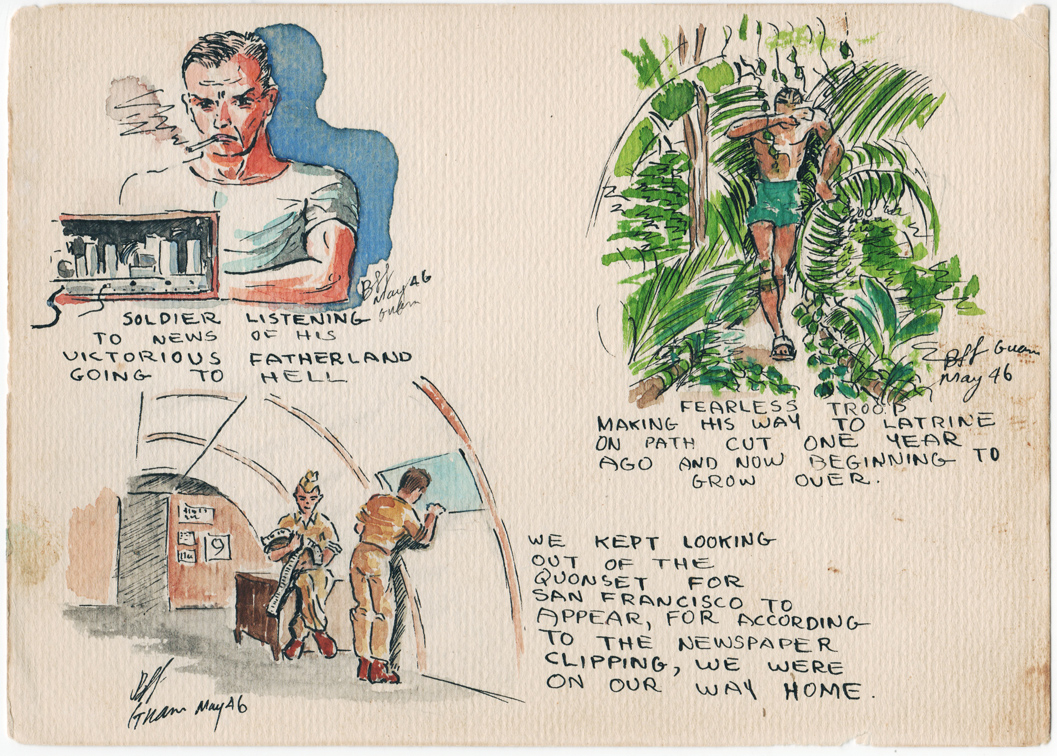 Bff
May 46
Guam
SOLDIER LISTENING
TO NEWS OF HIS
VICTORIOUS FATHERLAND
GOING TO HELL
Bff Guam
May 46
FEARLESS TROOP
MAKING HIS WAY TO LATRINE
ON PATH CUT ONE YEAR
AGO AND NOW BEGINNING TO
GROW OVER.
9
WE KEPT LOOKING
OUT OF THE
QUONSET FOR
SAN FRANCISCO TO
APPEAR, FOR ACCORDING
TO THE NEWSPAPER
CLIPPING, WE WERE
ON OUR WAY HOME.
Bff
Guam May 46